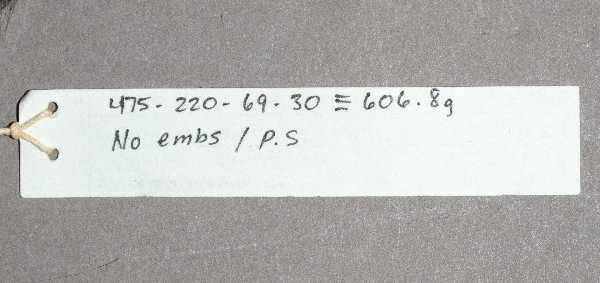 475-220-69-30 ≡ 606.8g
No embs / P.S